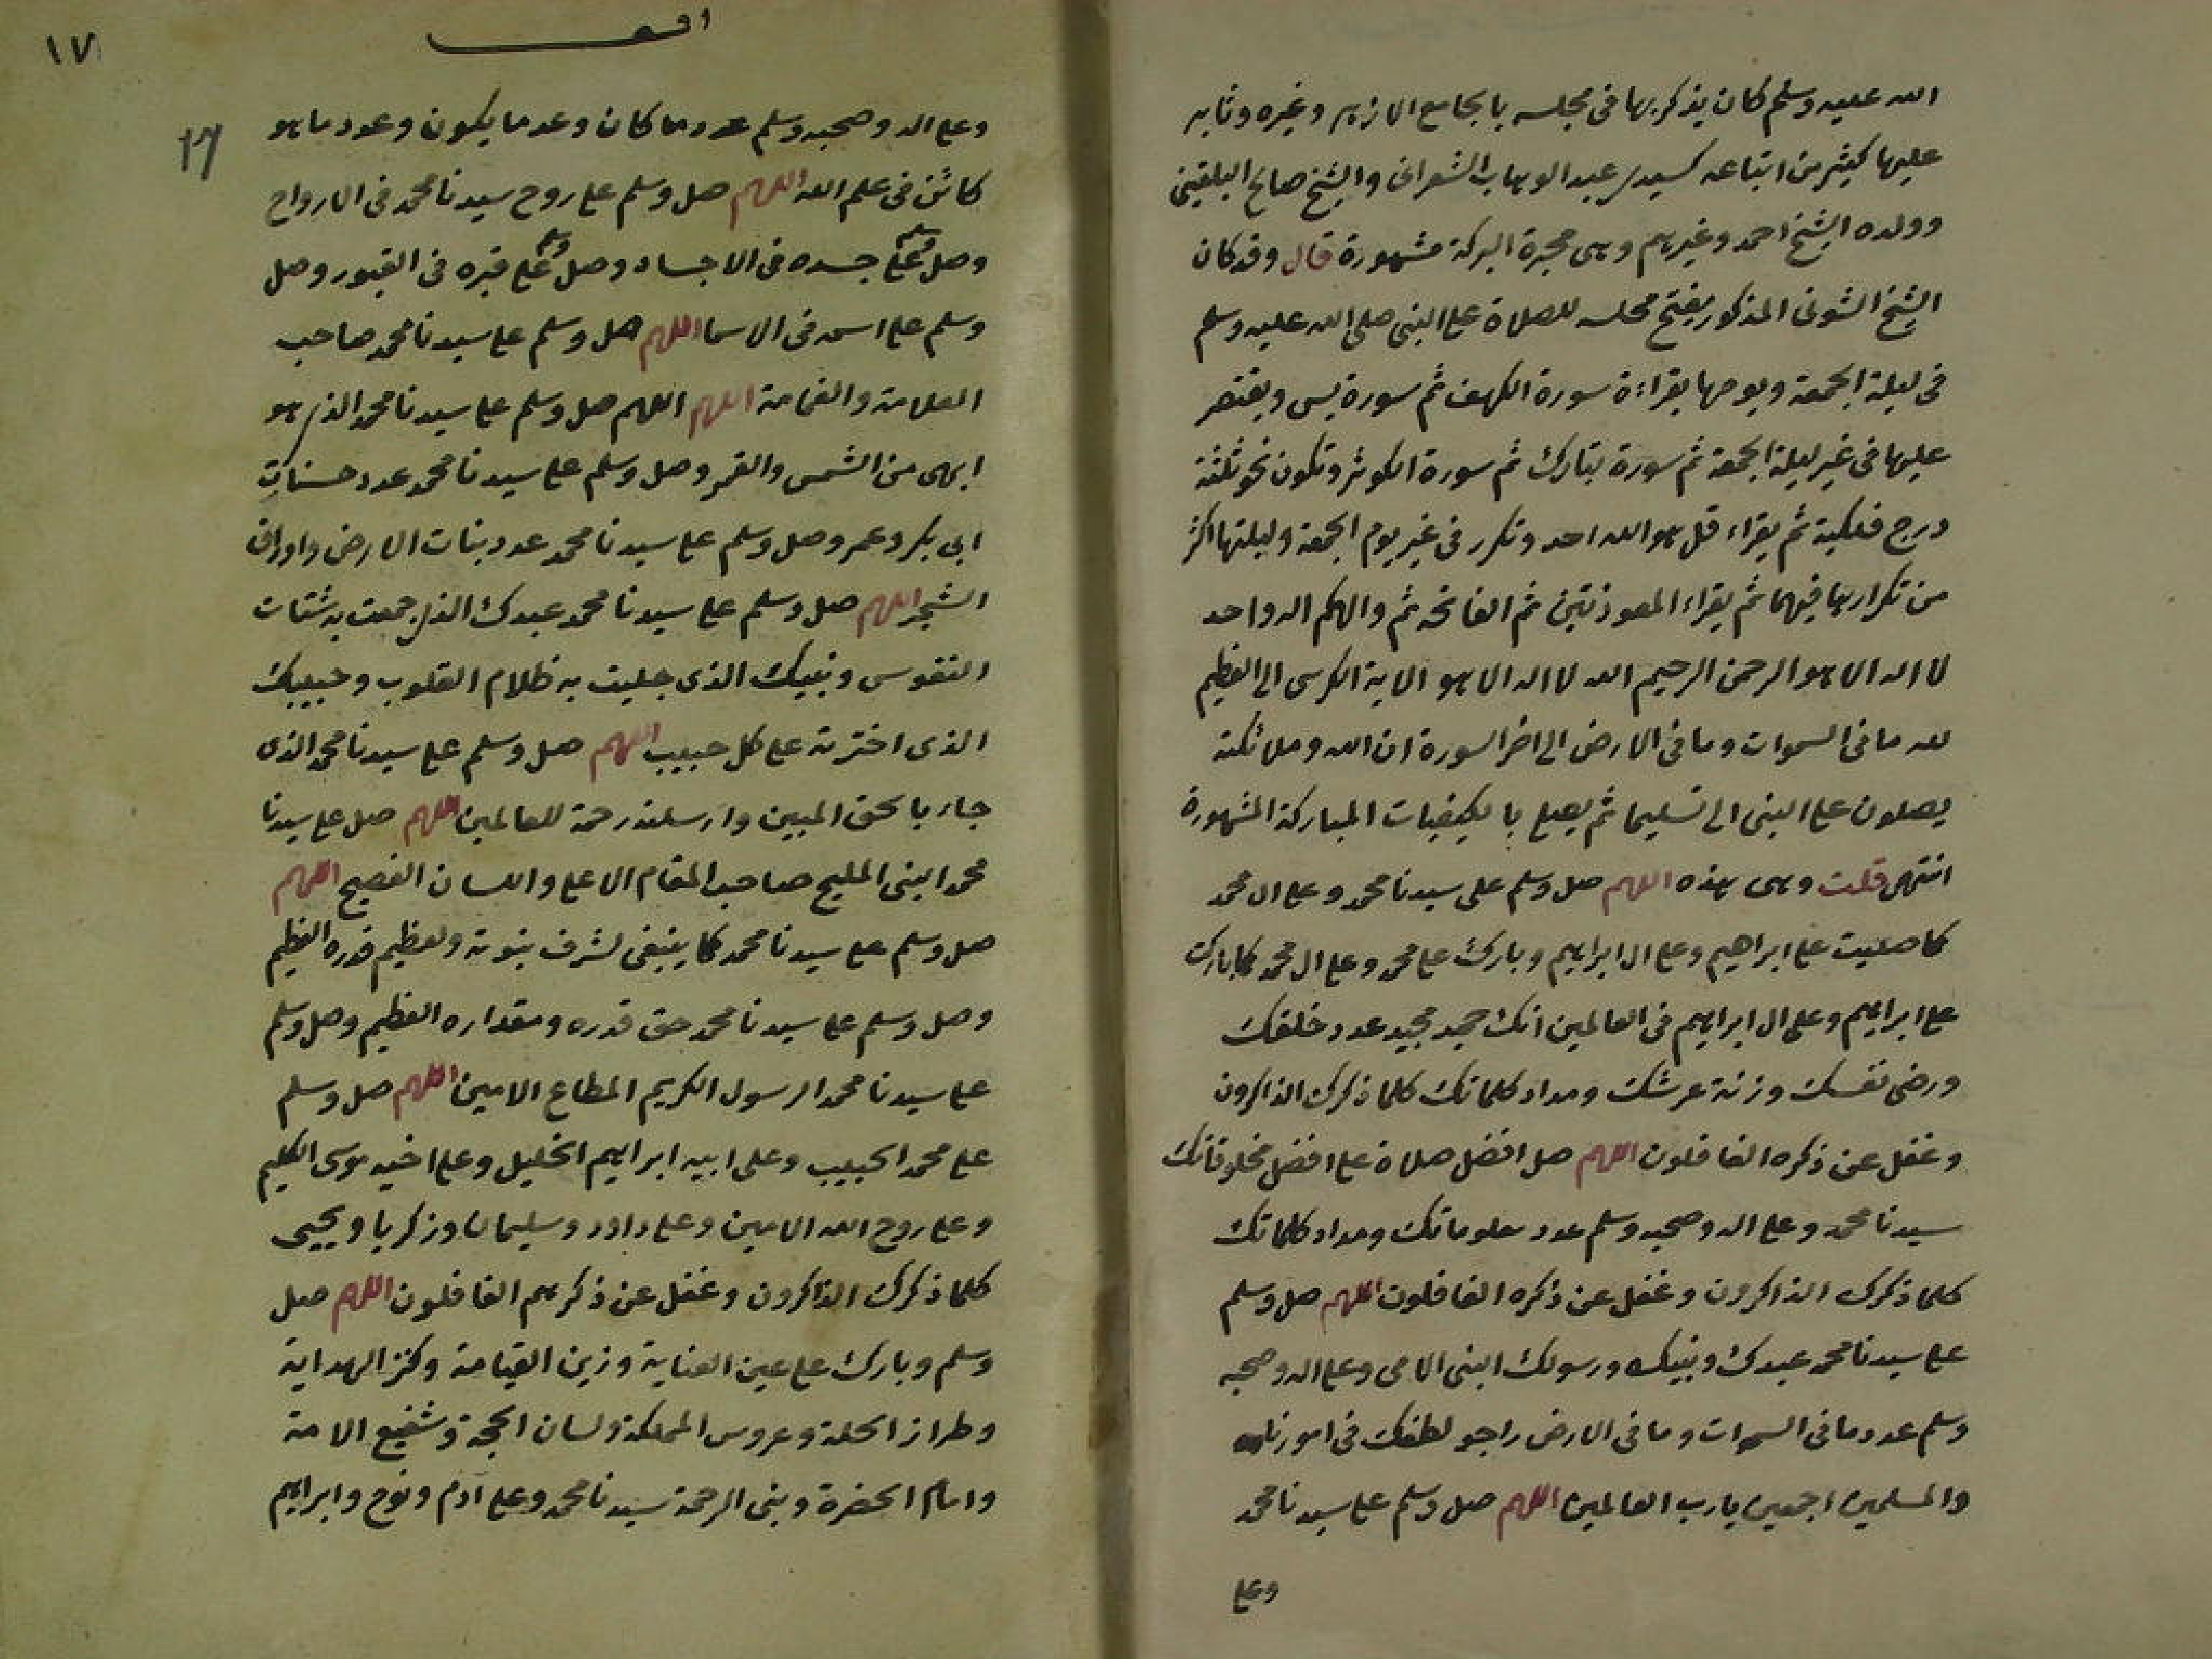 الله عليه وسلم كان يذكر بها فى مجلسه بالجامع الازهر وغيره وثابر
عليها كثير من اتباعه كسيدى عبد الوهاب الشعرانى والشيخ صالح البلقينى
وولده الشيخ احمد وغيرهم وهى مجربة البركة مشهورة قال وقد كان
الشيخ الشونى المذكور يفتح مجلسه للصلاة على النبى صلى الله عليه وسلم
فى ليلة الجمعة ويومها بقراءة سورة الكهف ثم سورة يس ويقتصر
عليها فى غير ليلة الجمعة ثم سورة تبارك ثم سورة الكوثر وتكون نحو ثلثة
درج فلكية ثم يقراء قل هو الله احد وتكرر فى غير يوم الجمعة وليلتها اكثر
من تكرارها فيهما ثم يقراء المعوذتين ثم الفاتحة ثم والهكم اله واحد
لا اله الا هو الرحمن الرحيم الله لا اله الا هو الاية الكرسى الى العظيم
لله ما فى السموات وما فى الارض الى اخر السورة ان الله وملائكته
يصلون على النبى الى تسليما ثم يصلى بالكيفيات المباركة المشهورة
انتهى قلت وهى هذه اللهم صل وسلم على سيدنا محمد وعلى ال محمد
كما صليت على ابراهيم وعلى ال ابراهيم وبارك على محمد وعلى ال محمد كما باركت
على ابراهيم وعلى ال ابراهيم فى العالمين انك حميد مجيد عدد خلقك
ورضى نفسك وزنة عرشك ومداد كلماتك كلما ذكرك الذاكرون
وغفل عن ذكره الغافلون اللهم صل افضل صلاة على افضل مخلوقاتك
سيدنا محمد وعلى اله وصحبه وسلم عدد معلوماتك ومداد كلماتك
كلما ذكرك الذاكرون وغفل عن ذكره الغافلون اللهم صل وسلم
على سيدنا محمد عبدك ونبيك ورسولك النبى الامى وعلى اله وصحبه
وسلم عدد ما فى السموات وما فى الارض راجو لطفك فى امورنا
والمسلمين اجمعين يا رب العالمين اللهم صل وسلم على سيدنا محمد
وعلى
١٧
وعلى اله وصحبه وسلم عدد ما كان وعد ما يكون وعدد ما هو
كائن فى علم الله اللهم صل وسلم على روح سيدنا محمد فى الارواح
وصل وسلم على جسده فى الاجساد وصل وسلم على قبره فى القبور وصل
وسلم على اسمه فى الاسما اللهم صل وسلم على سيدنا محمد صاحب
العلامة والغمامة اللهم اللهم صل وسلم على سيدنا محمد الذى هو
ابهى من الشمس والقمر وصل وسلم على سيدنا محمد عدد حسنات
ابى بكر وعمر وصل وسلم على سيدنا محمد عدد نبات الارض واوراق
الشجر اللهم صل وسلم على سيدنا محمد عبدك الذى جمعت به شتات
النفوس ونبيك الذى جليت به ظلام القلوب وحبيبك
الذى اخترته على كل حبيب اللهم صل وسلم على سيدنا محمد الذى
جاء بالحق المبين وارسلته رحمة للعالمين اللهم صل على سيدنا
محمد النبى المليح صاحب المقام الاعلى واللسان الفصيح اللهم
صل وسلم على سيدنا محمد كما ينبغى لشرف نبوته ولعظيم قدره العظيم
وصل وسلم على سيدنا محمد حق قدره ومقداره العظيم وصل وسلم
على سيدنا محمد الرسول الكريم المطاع الامين اللهم صل وسلم
على محمد الحبيب وعلى ابيه ابراهيم الخليل وعلى اخيه موسى الكليم
وعلى روح الله الامين وعلى داود وسليمان وزكريا ويحيى
كلما ذكرك الذاكرون وغفل عن ذكرهم الغافلون اللهم صل
وسلم وبارك على عين العناية وزين القيامة وكنز الهداية
وطراز الحلة وعروس المملكة ولسان الحجة وشفيع الامة
وامام الحضرة ونبى الرحمة سيدنا محمد وعلى آدم ونوح وابراهيم